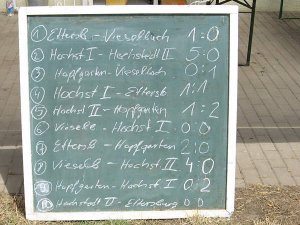 ① Ettersb. - Vieselbach 1:0
② Hochst I - Hochstedt II 5:0
③ Hopfgarten - Vieselbach 0:1
④ Hochst I - Ettersb 1:1
⑤ Hochst II - Hopfgarten 1:2
⑥ Vieselb - Hochst I 0:0
⑦ Ettersb - Hopfgarten 2:0
⑧ Vieselb - Hochst II 4:0
⑨ Hopfgarten - Hochst I 0:2
⑩ Hochstadt II - Ettersburg 0 0